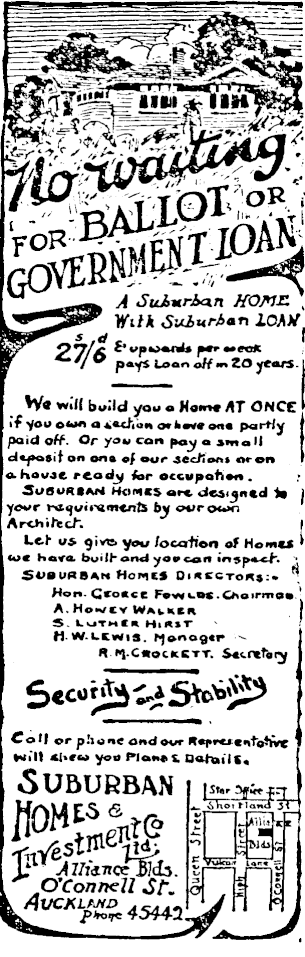 No waiting
FOR BALLOT OR
GOVERNMENT LOAN
A Suburban HOME
With Suburban LOAN
27s/6d & upwards per week
pays Loan off in 20 years.
We will build you a Home AT ONCE
if you own a section or have one partly
paid off. Or you can pay a small
deposit on one of our sections or on
a house ready for occupation.
SUBURBAN HOMES are designed to
your requirements by our own
Architect.
Let us give you location of Homes
we have built and you can inspect.
SUBURBAN HOMES DIRECTORS:-
Hon. GEORGE FOWLDS. Chairman
A. HONEY WALKER
S. LUTHER HIRST
H.W. LEWIS. Manager
R.M. CROCKETT. Secretary
Security and Stability
Call or phone and our Representative
will shew you Plans & Details.
SUBURBAN
HOMES &
Investment Co
Ltd;
Alliance Blds.
O'Connell St.
AUCKLAND
Phone 45442
Star Office
Shortland St
Queen Street
High Street
Allia
Blds
Vulcan Lane
O'Connell St